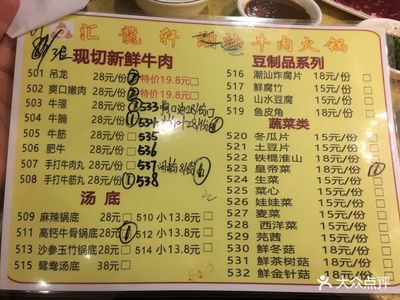 汇龍轩 潮汕牛肉火锅
现切新鲜牛肉
501 吊龙 28元/份 特价19.8元
502 爽口嫩肉 28元/份 特价19.8元
503 牛腿 28元/份 533
504 牛腩 28元/份 534
505 牛筋 28元/份 535
506 肥牛 28元/份 536
507 手打牛肉丸 28元/份 537
508 手打牛筋丸 28元/份 538
汤底
509 麻辣锅底 28元 510 小 13.8元
511 高钙牛骨锅底 28元 512 小 13.8元
513 沙参玉竹锅底 28元 514 小 13.8元
515 鸳鸯汤底 38元
豆制品系列
516 潮汕炸腐片 18元/份
517 鲜腐竹 15元/份
518 山水豆腐 15元/份
519 鱼皮角 18元/份
蔬菜类
520 冬瓜片 15元/份
521 土豆片 15元/份
522 铁棍淮山 18元/份
523 皇帝菜 18元/份
524 生菜 15元/份
525 菜心 15元/份
526 娃娃菜 15元/份
527 麦菜 15元/份
528 西洋菜 15元/份
529 芫茜 15元/份
530 鲜冬菇 18元/份
531 鲜茶树菇 18元/份
532 鲜金针菇 18元/份
大众点评